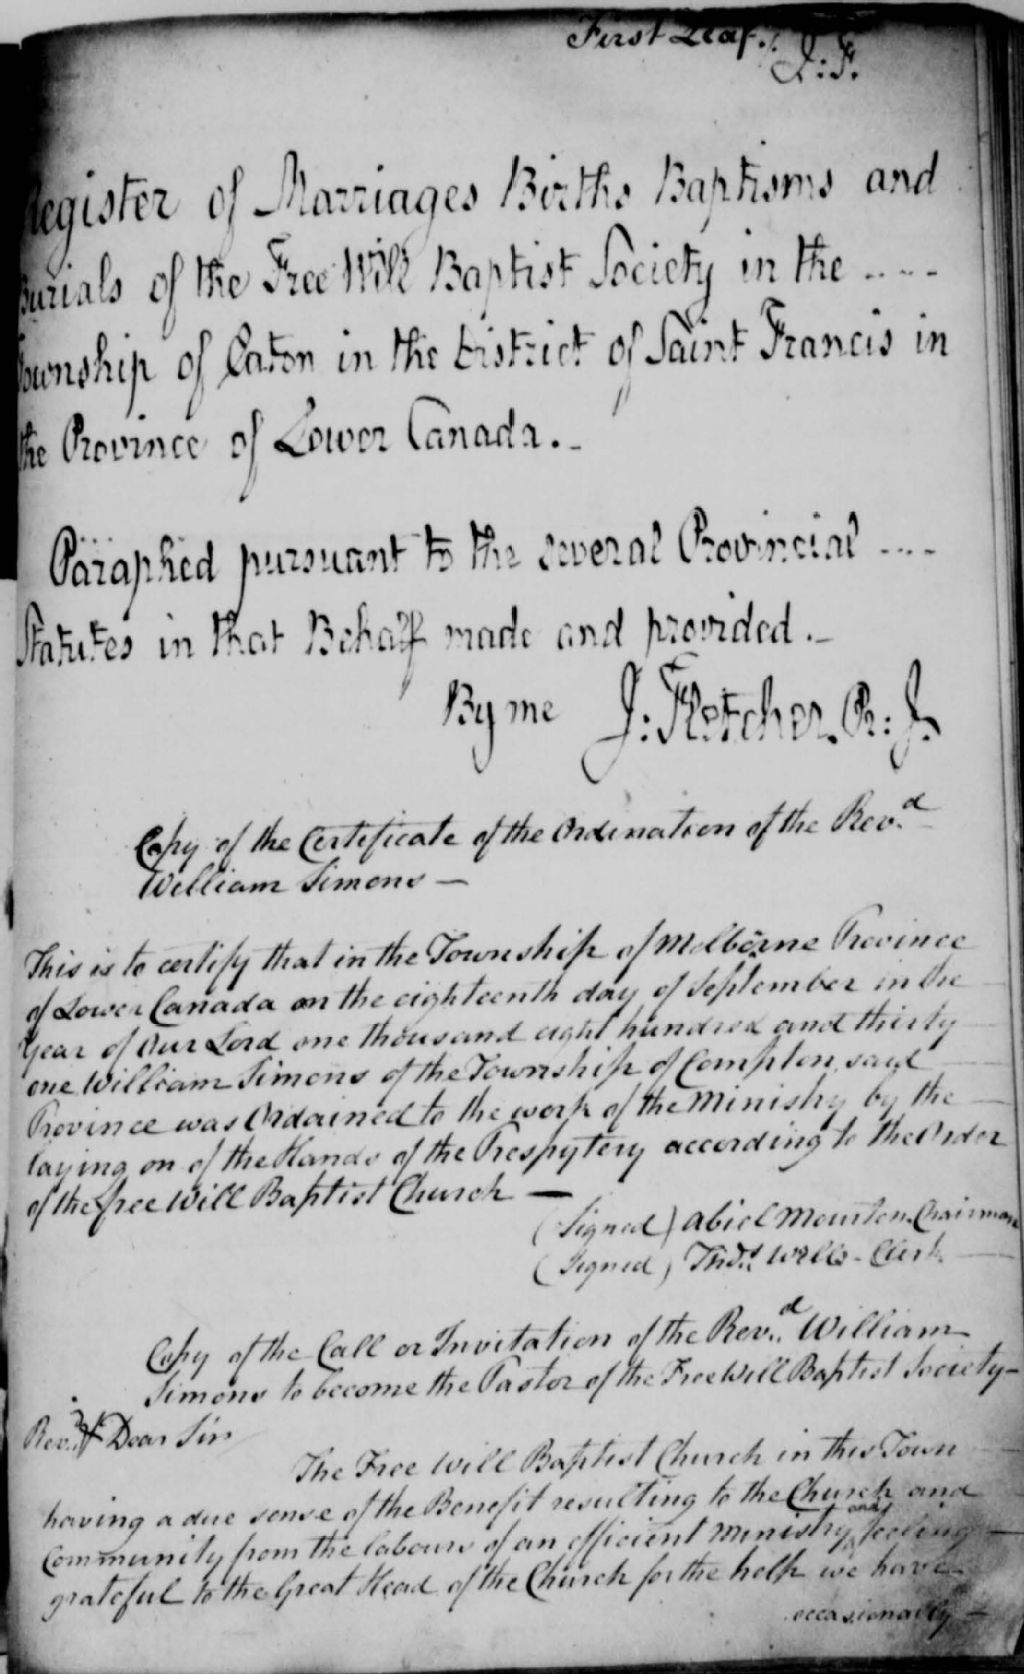 First Leaf.
J: F.
Register of Marriages Births Baptisms and
Burials of the Free Will Baptist Society in the ....
Township of Eaton in the District of Saint Francis in
the Province of Lower Canada. -
Paraphed pursuant to the several Provincial ....
Statutes in that Behalf made and provided. -
By me J: Fletcher. P: J.
Copy of the Certificate of the Ordination of the Rev.d
William Simons —
This is to certify that in the Township of Melborne Province
of Lower Canada on the eighteenth day of September in the
year of Our Lord one thousand eight hundred and thirty
one William Simons of the Township of Compton, said
Province was Ordained to the work of the Ministry by the
laying on of the Hands of the Prespytery according to the Order
of the free Will Baptist Church —
(Signed) Abiel Moulton. Chairman
(Signed) Thos. Wells - Clerk
Copy of the Call or Invitation of the Rev.d William
Simons to become the Pastor of the Free Will Baptist Society -
Rev.d Dear Sir
The Free Will Baptist Church in this Town
having a due sense of the Benefit resulting to the Church and
Community from the labours of an efficient Ministry and feeling
grateful to the Great Head of the Church for the help we have
occasionally -